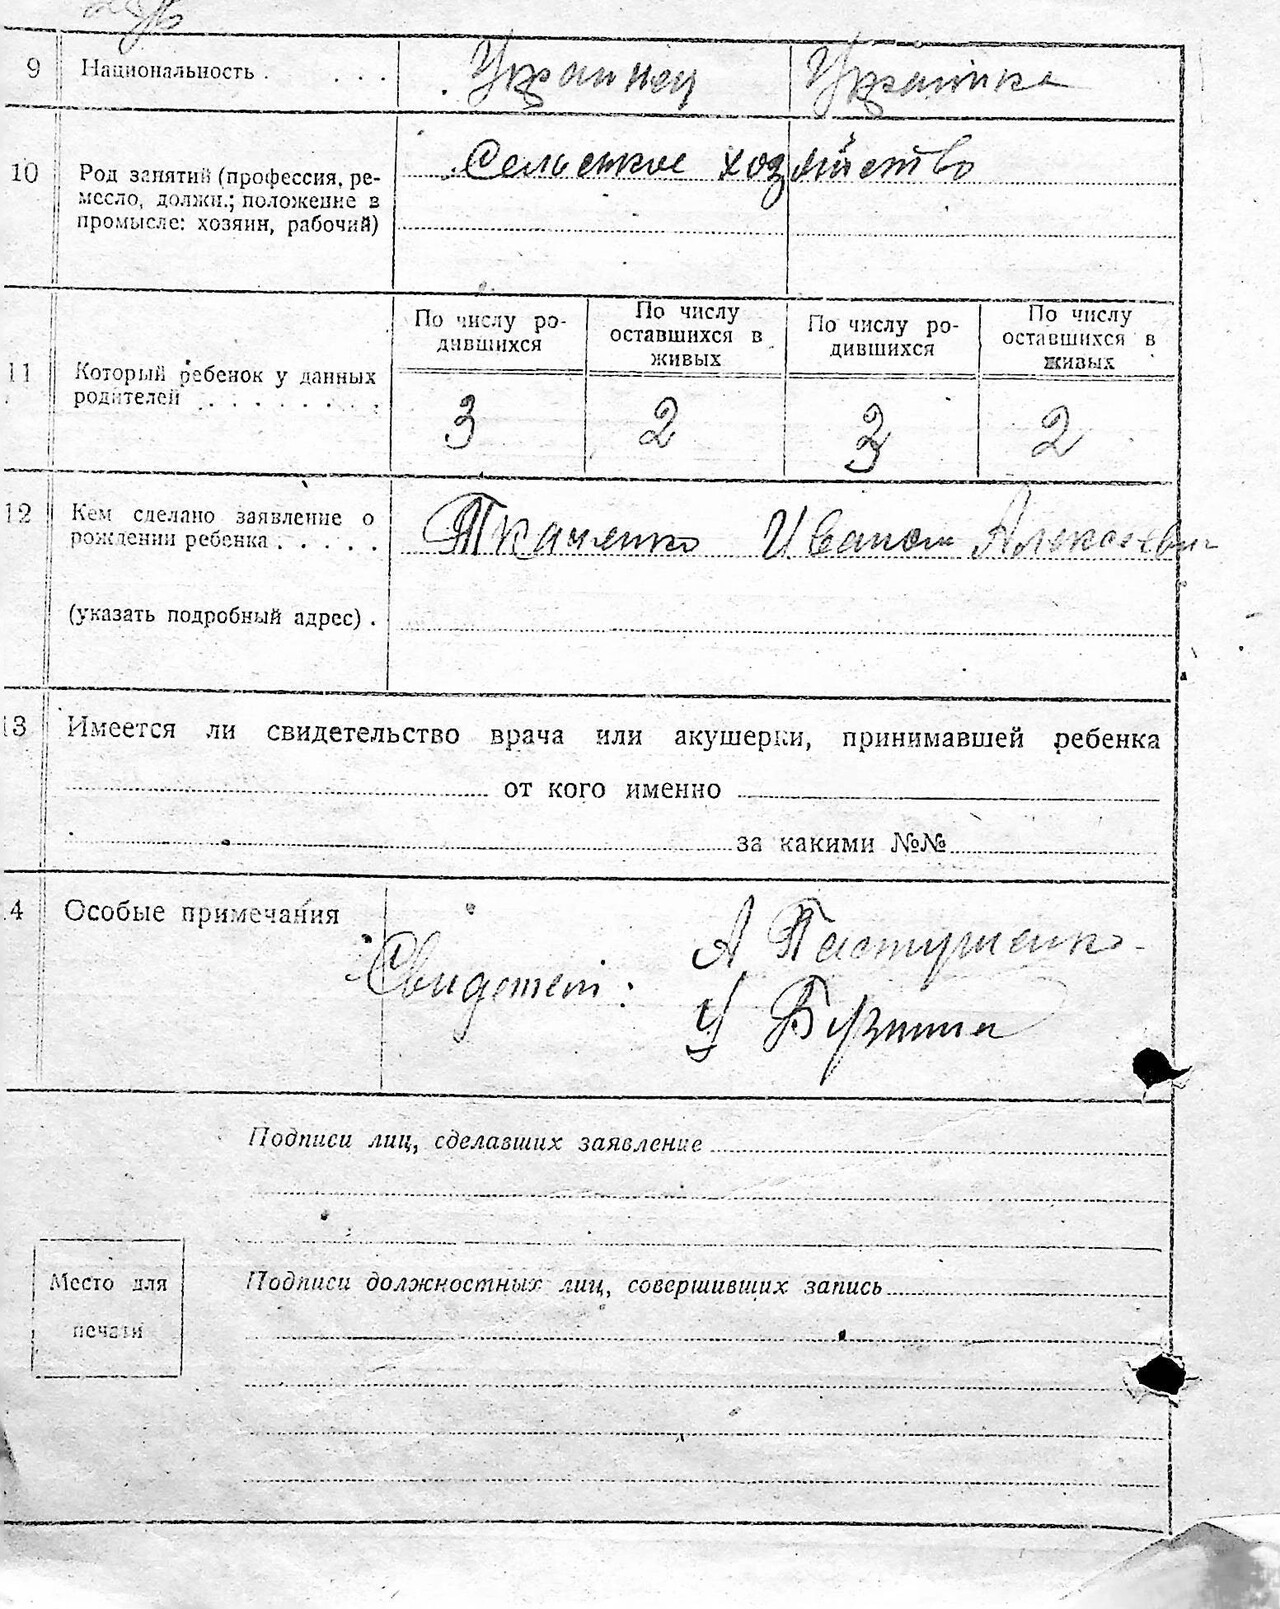 9 Национальность . . . . Украинец Украинка
10 Род занятий (профессия, ре-
месло, должн.; положение в
промысле: хозяин, рабочий)
Сельское хозяйство
По числу ро-
дившихся
По числу
оставшихся в
живых
По числу ро-
дившихся
По числу
оставшихся в
живых
11 Который ребенок у данных
родителей . . . . . . . .
3 2 3 2
12 Кем сделано заявление о
рождении ребенка . . . . .
Ткаченко Иваном Алексеевич
(указать подробный адрес) .
13 Имеется ли свидетельство врача или акушерки, принимавшей ребенка
от кого именно
за какими №№
4 Особые примечания
Свидетели: А Пастушенко
У
Подписи лиц, сделавших заявление
Подписи должностных лиц, совершивших запись
Место для
печати